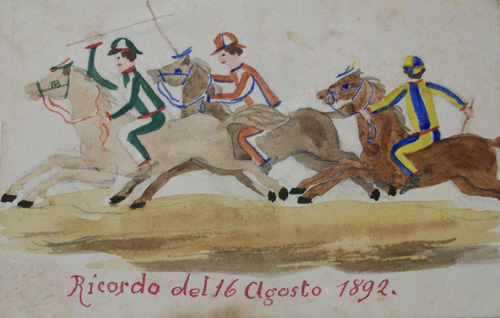 Ricordo del 16 Agosto 1892.